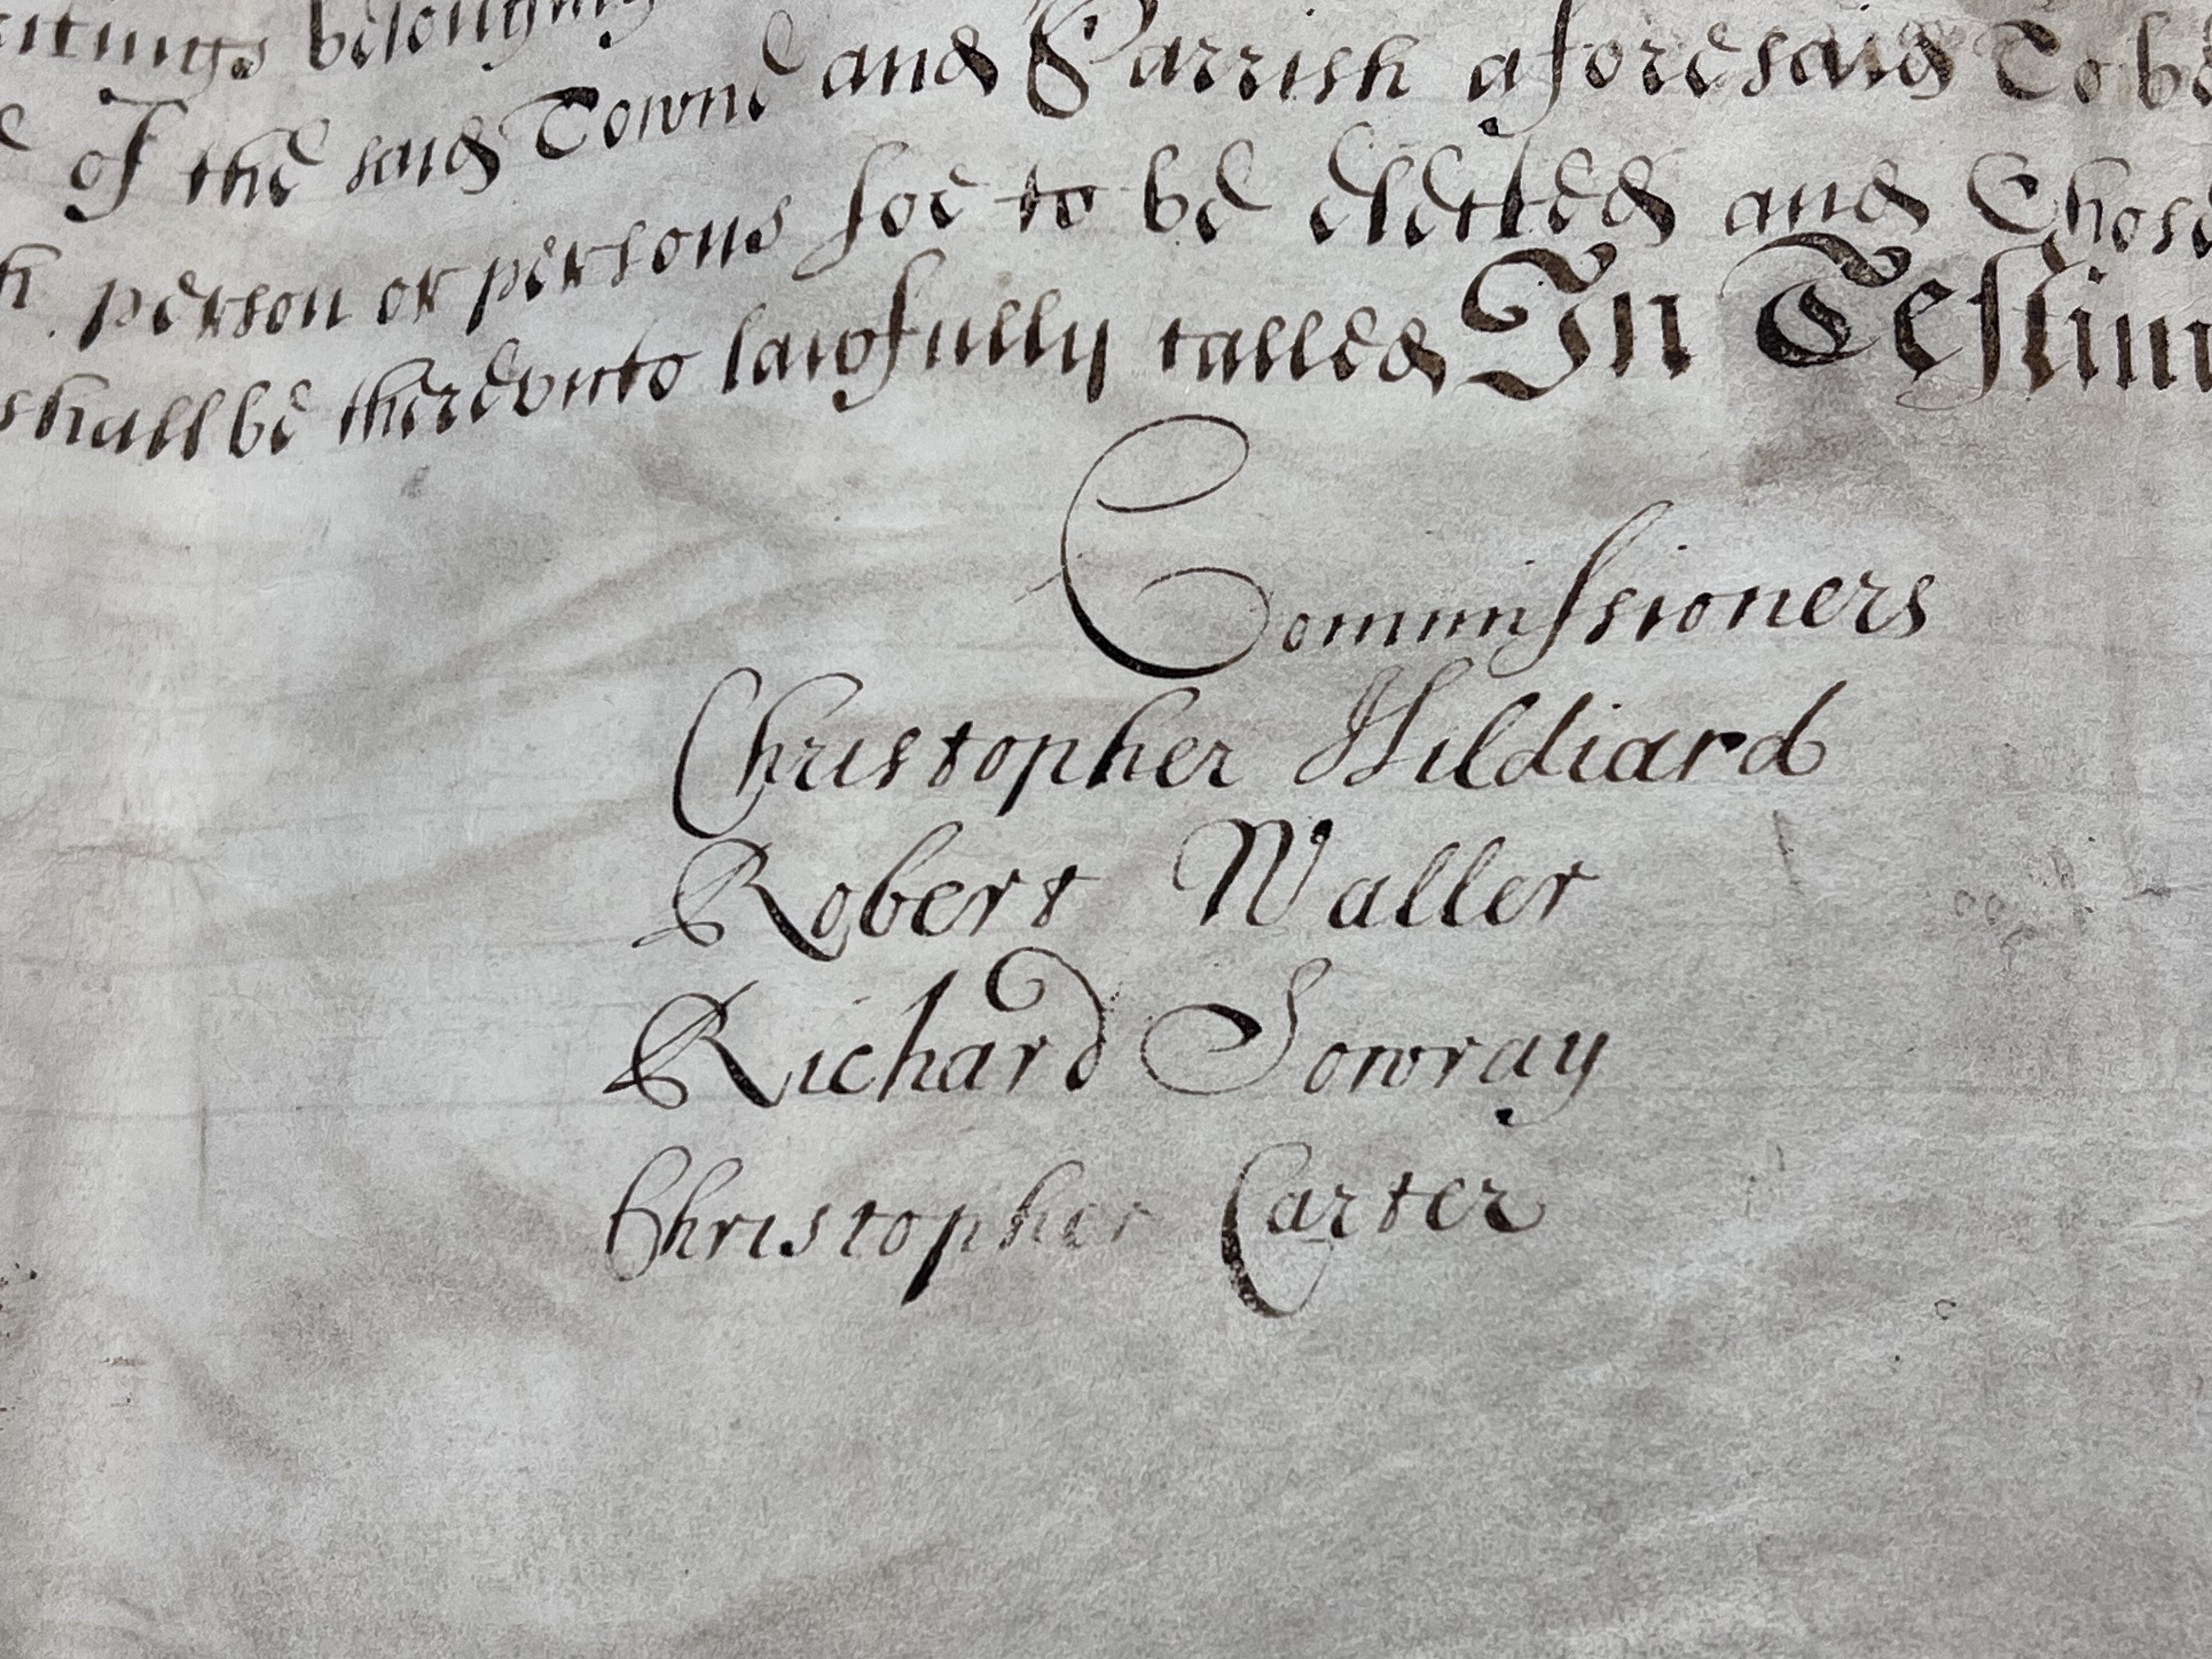 belonging
of the said Towne and Parrish aforesaid To be
person or persons soe to be elected and Chose
shall be therevnto lawfully called In Testim
Commissioners
Christopher Hildiard
Robert Waller
Richard Sowray
Christopher Carter